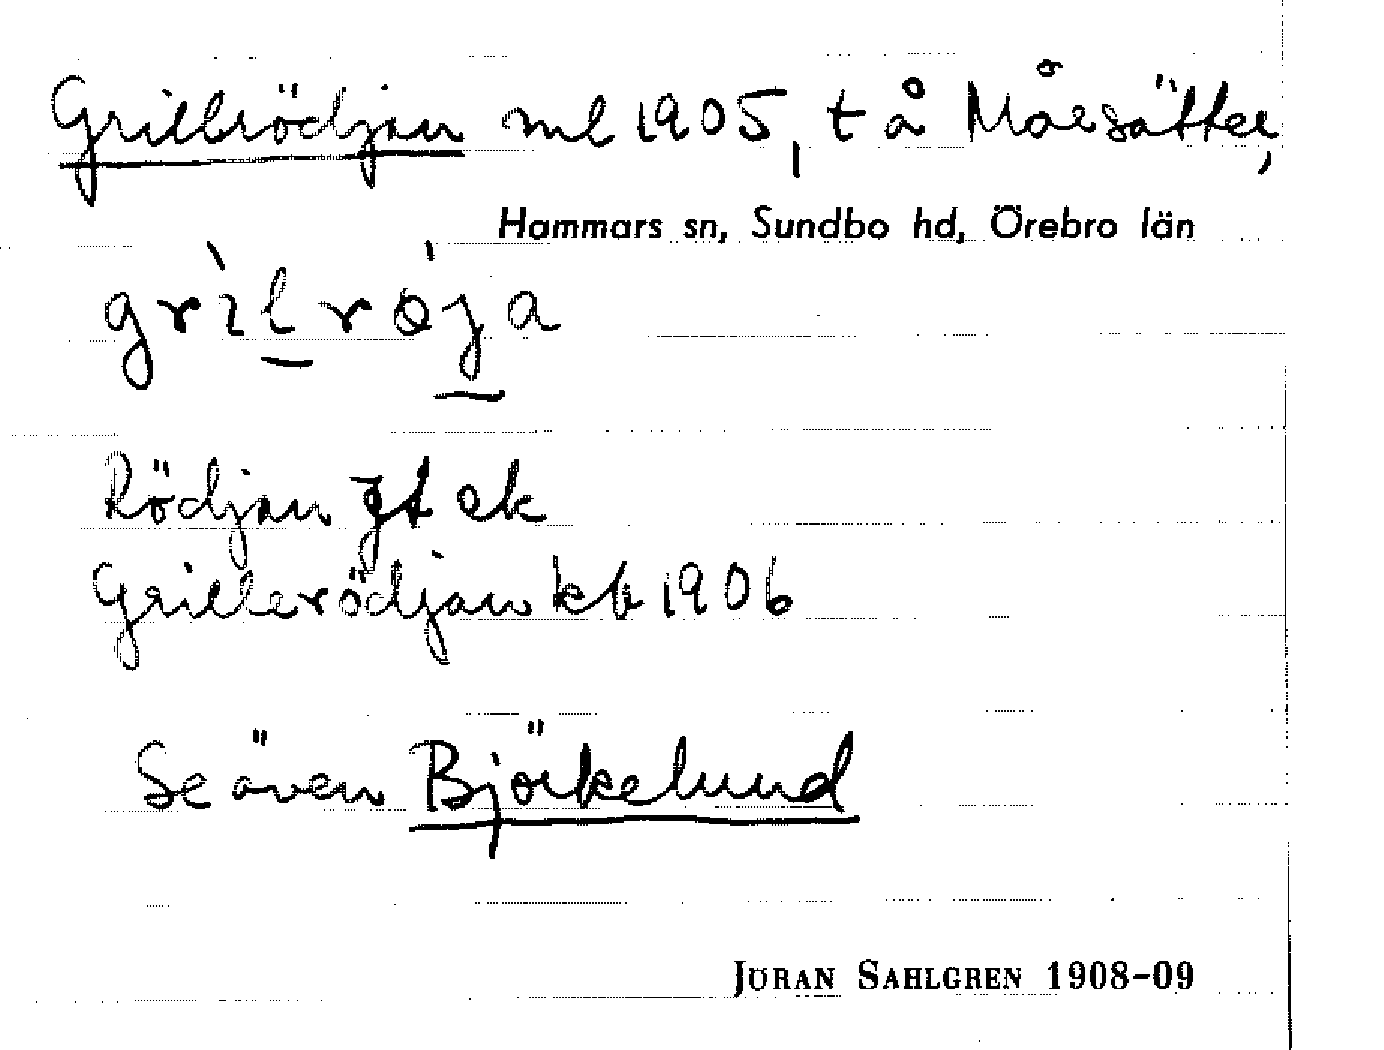 Grillrödjan ml 1905, t å Mårsätter,
Hammars sn, Sundbo hd, Örebro län
grìlrǿja
Rödjan Jt ek
Grillerödjan kb 1906
Se även Björkelund
JÖRAN SAHLGREN 1908-09